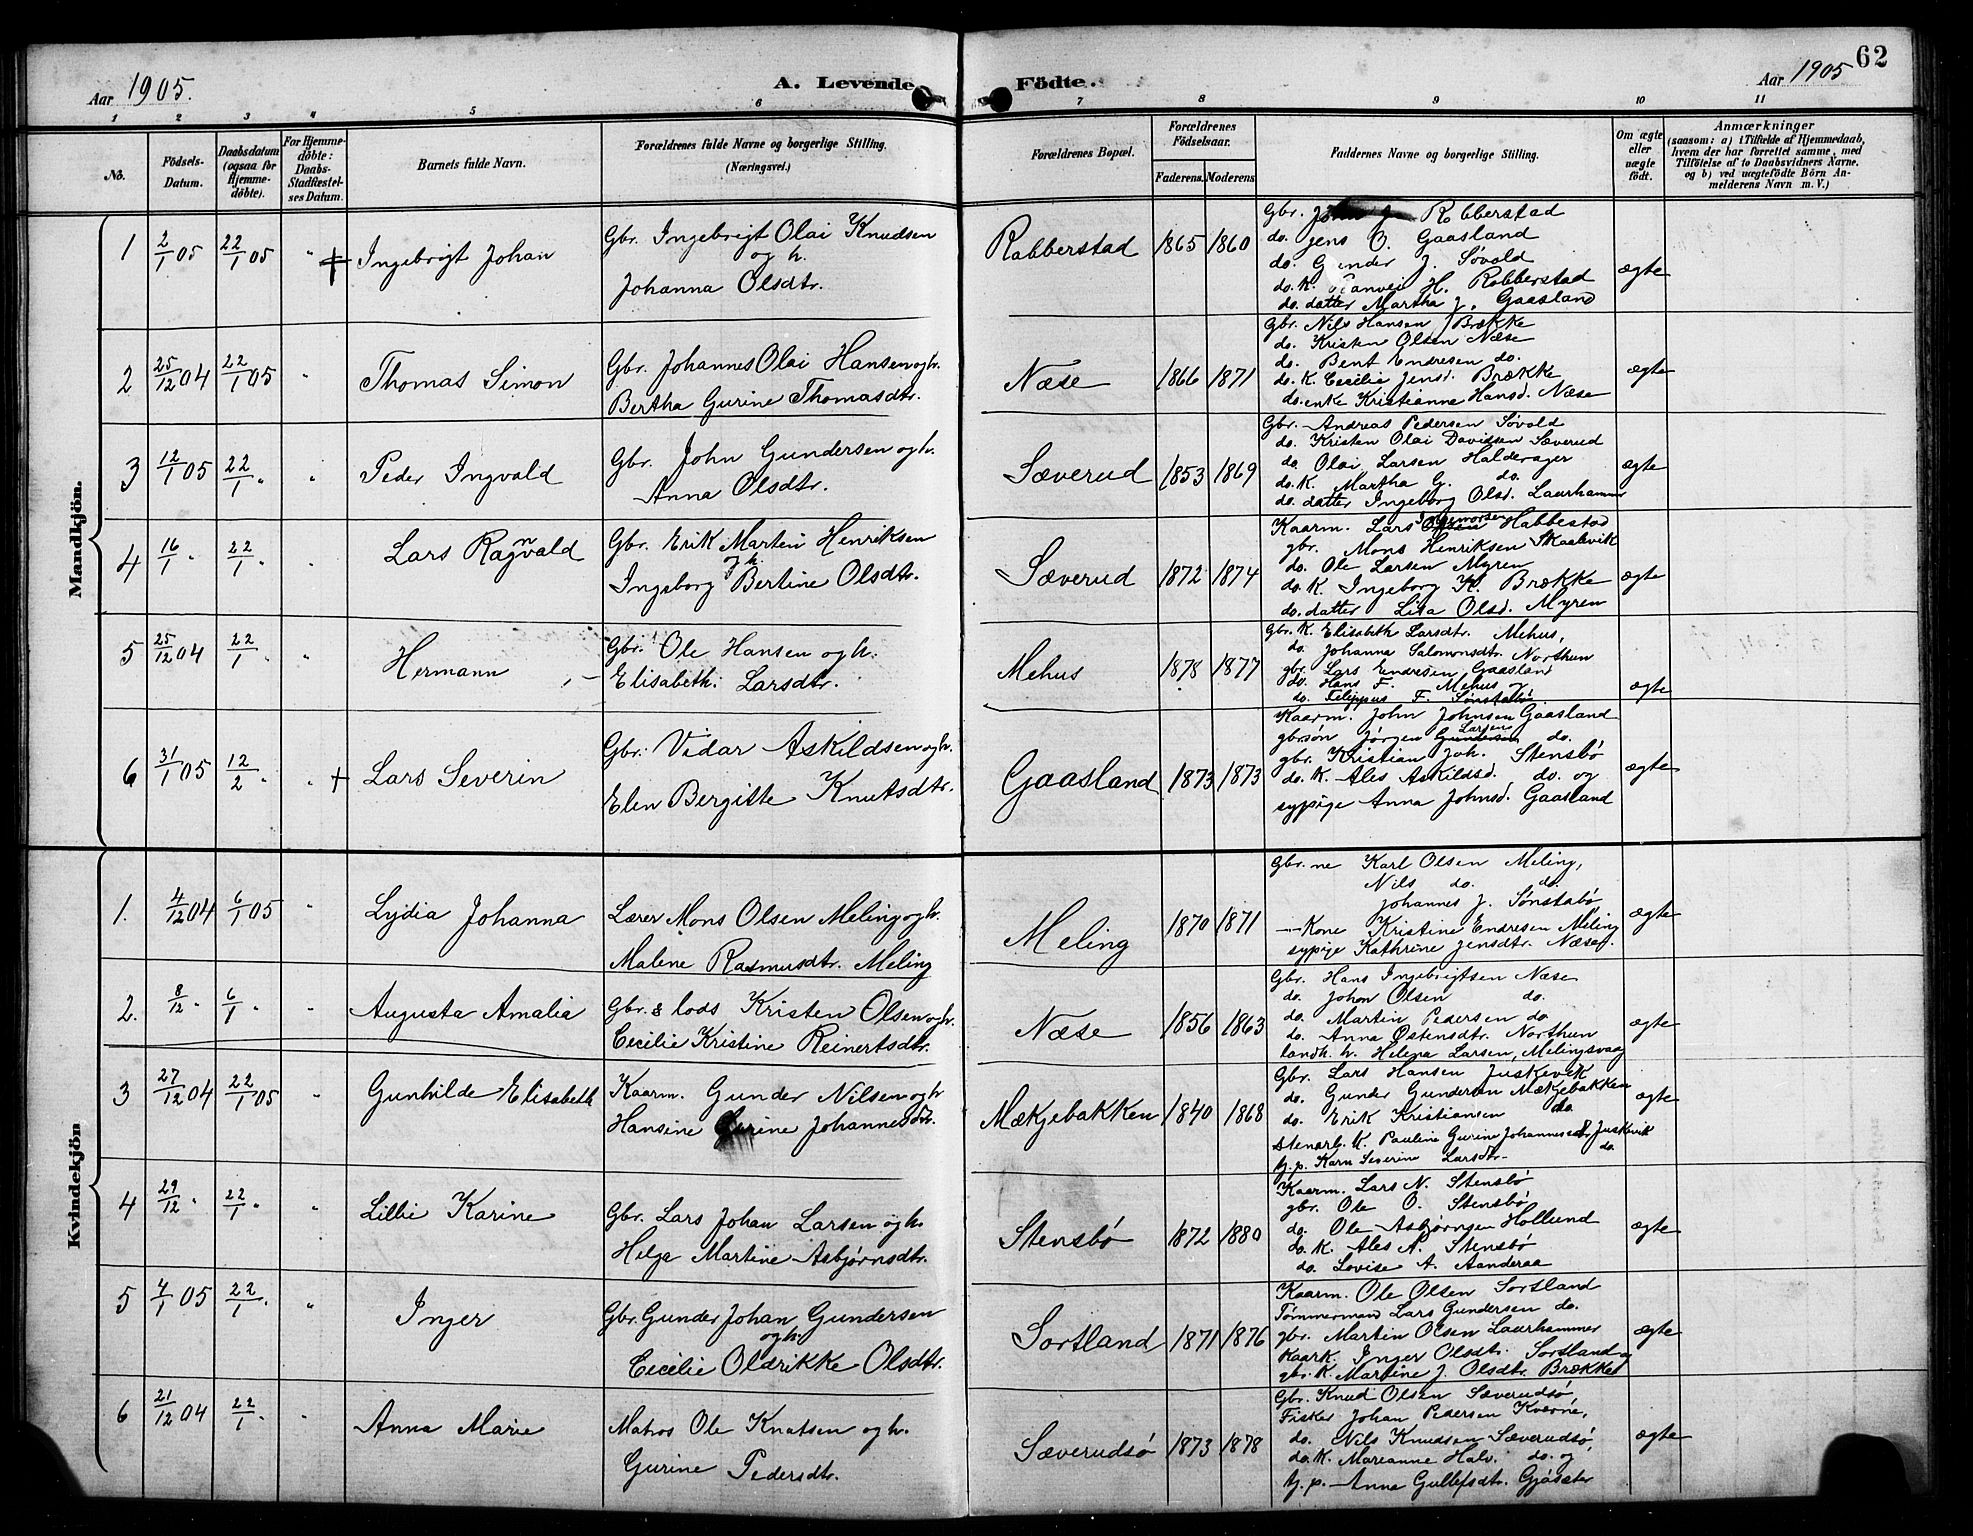 62
Aar 1905. A. Levende Födte. Aar 1905
1 2 3 4 5 6 7 8 9 10 11
No. Födsels-Datum. Daabsdatum (ogsaa for Hjemme-döbte). For Hjemme-döbte: Daabs-Stadfæstel-ses Datum. Barnets fulde Navn. Forældrenes fulde Navne og borgerlige Stilling. (Næringsvei.) Forældrenes Bopæl. Forældrenes Födselsaar. Faderens. Moderens Faddernes Navne og borgerlige Stilling. Om ægte eller uægte födt. Anmærkninger
(saasom: a) i Tilfælde af Hjemmedaab,
hvem der har forrettet samme, med
Tilföielse af to Daabsvidners Navne.
og b) ved uægtefödte Börn An-
melderens Navn m. V.)
Mandkjön.
1 2/1 05 22/1 05 " + Ingebrigt Johan
Gbr. Ingebrigt Olai Knudsen
og h.
Johanna Olsdtr.
Robberstad 1865 1860
Gbr. J Robberstad
do. Jens O. Gaasland
do. Gunder J. Søvold
do. K. H. Robberstad
do. datter Martha J. Gaasland
ægte
2 25/12 04 22/1 05 " Thomas Simon
Gbr. Johannes Olai Hansen og h.
Bertha Gurine Thomasdtr.
Næse 1866 1871
Gbr. Nils Hansen Brække
do. Kristen Olsen Næse
do. Bent Endresen do.
do. K. Cecilie Jensd. Brække
do. enke Kristianne Hansd. Næse
ægte
3 12/1 05 22/1 " " Peder Ingvald
Gbr. John Gundersen og h.
Anna Olsdtr.
Sæverud 1853 1869
Gbr. Andreas Pedersen Søvold
do. Kristen Olai Davidsen Sæverud
do. Olai Larsen Halderager
do. K. Martha G. do.
do. datter Ingeborg Olsd. Laurhammer
ægte
4 16/1 " 22/1 " " Lars Ragnvald
Gbr. Erik Martin Henriksen
og h.
Ingeborg Bertine Olsdtr.
Sæverud 1872 1874
Kaarm. Lars Habbestad
gbr. Mons Henriksen Skaalevik
do. Ole Larsen Myren
do. K. Ingeborg K. Brække
do. datter Lisa Olsd. Myren
ægte
5 25/12 04 22/1 " " Hermann
Gbr. Ole Hansen og h.
Elisabeth Larsdtr.
Mehus 1878 1877
Gbr. K. Elisabeth Larsdtr. Mehus,
do. Johanna Salomonsdtr. Northun
gbr. Lars Endresen Gaasland
do. Hans F. Mehus og
do. Filippus F. Sønstabø
ægte
6 31/1 05 12/2 " " + Lars Severin
Gbr. Vidar Askildsen og h.
Elen Bergitte Knutsdtr.
Gaasland 1873 1873
Kaarm. John Johnsen Gaasland
Larsen
gbrsøn Jørgen Gundersen do.
gbr. Kristian Joh. Stensbø
do. K. Ales Askildsd. do. og
sypige Anna Johnsd. Gaasland
ægte
Kvindekjön
1. 4/12 04 6/1 05 " Lydia Johanna
Lærer Mons Olsen Meling og h.
Malene Rasmusdtr. Meling
Meling 1870 1871
Gbr.ne Karl Olsen Meling,
Nils do. do.
Johannes J. Sønstabø
— Kone Kristine Endresen Meling
sypige Kathrine Jensdtr. Næse.
ægte
2. 8/12 " 6/1 " " Augusta Amalia
Gbr. & lods Kristen Olsen og h.
Cecilie Kristine Reinertsdtr.
Næse 1856 1863
Gbr. Hans Ingebrigtsen Næse
do. Johan Olsen do.
do. Martin Pedersen do
do. Anna Østensdtr. Northun
landh. h. Helena Larsen, Melingsvaag
ægte
3 27/12 04 22/1 05 " Gunhilde Elisabeth
Kaarm. Gunder Nilsen og h
Hansine Gurine Johannesdtr.
Mækjebakken 1840 1868
Gbr. Lars Hansen Juskevik
do. Gunder Gundersen Mækjebakken
do. Erik Kristiansen do.
Stenarb. K. Pauline Gurine Johannesdtr Juskevik
tj. p. Karn Severine Larsdtr. do.
ægte
4 29/12 " 22/1 " " Lillie Karine
Gbr. Lars Johan Larsen og h.
Helga Martine Asbjørnsdtr.
Stensbø 1872 1880
Kaarm. Lars N. Stensbø
gbr. Ole O. Stensbø
do. Ole Asbjørnsen Hollund
do. K. Ales A. Stensbø
do. Lovise A. Aanderaa
ægte
5 4/1 05 22/1 " " Inger
Gbr. Gunder Johan Gundersen
og h.
Cecilie Oldrikke Olsdtr.
Sortland 1871 1876
Kaarm. Ole Olsen Sortland
Tømmermand Lars Gundersen do.
gbr. Martin Olsen Laurhammer
Kaark. Inger Olsdtr. Sortland og
gbr. K. Martine J. Olsdtr. Brække
ægte
6 21/12 04 22/1 " " Anna Marie
Matros Ole Knutsen og h.
Gurine Pedersdtr.
Sæverudsø 1873 1878
Gbr. Knud Olsen Sæverudsø,
Fisker Johan Pedersen Kværne,
do. Nils Knudsen Sæverudsø,
do. K. Marianne Halv. do. og
tj. p. Anna Gullefsdtr. Gjøsæter
ægte